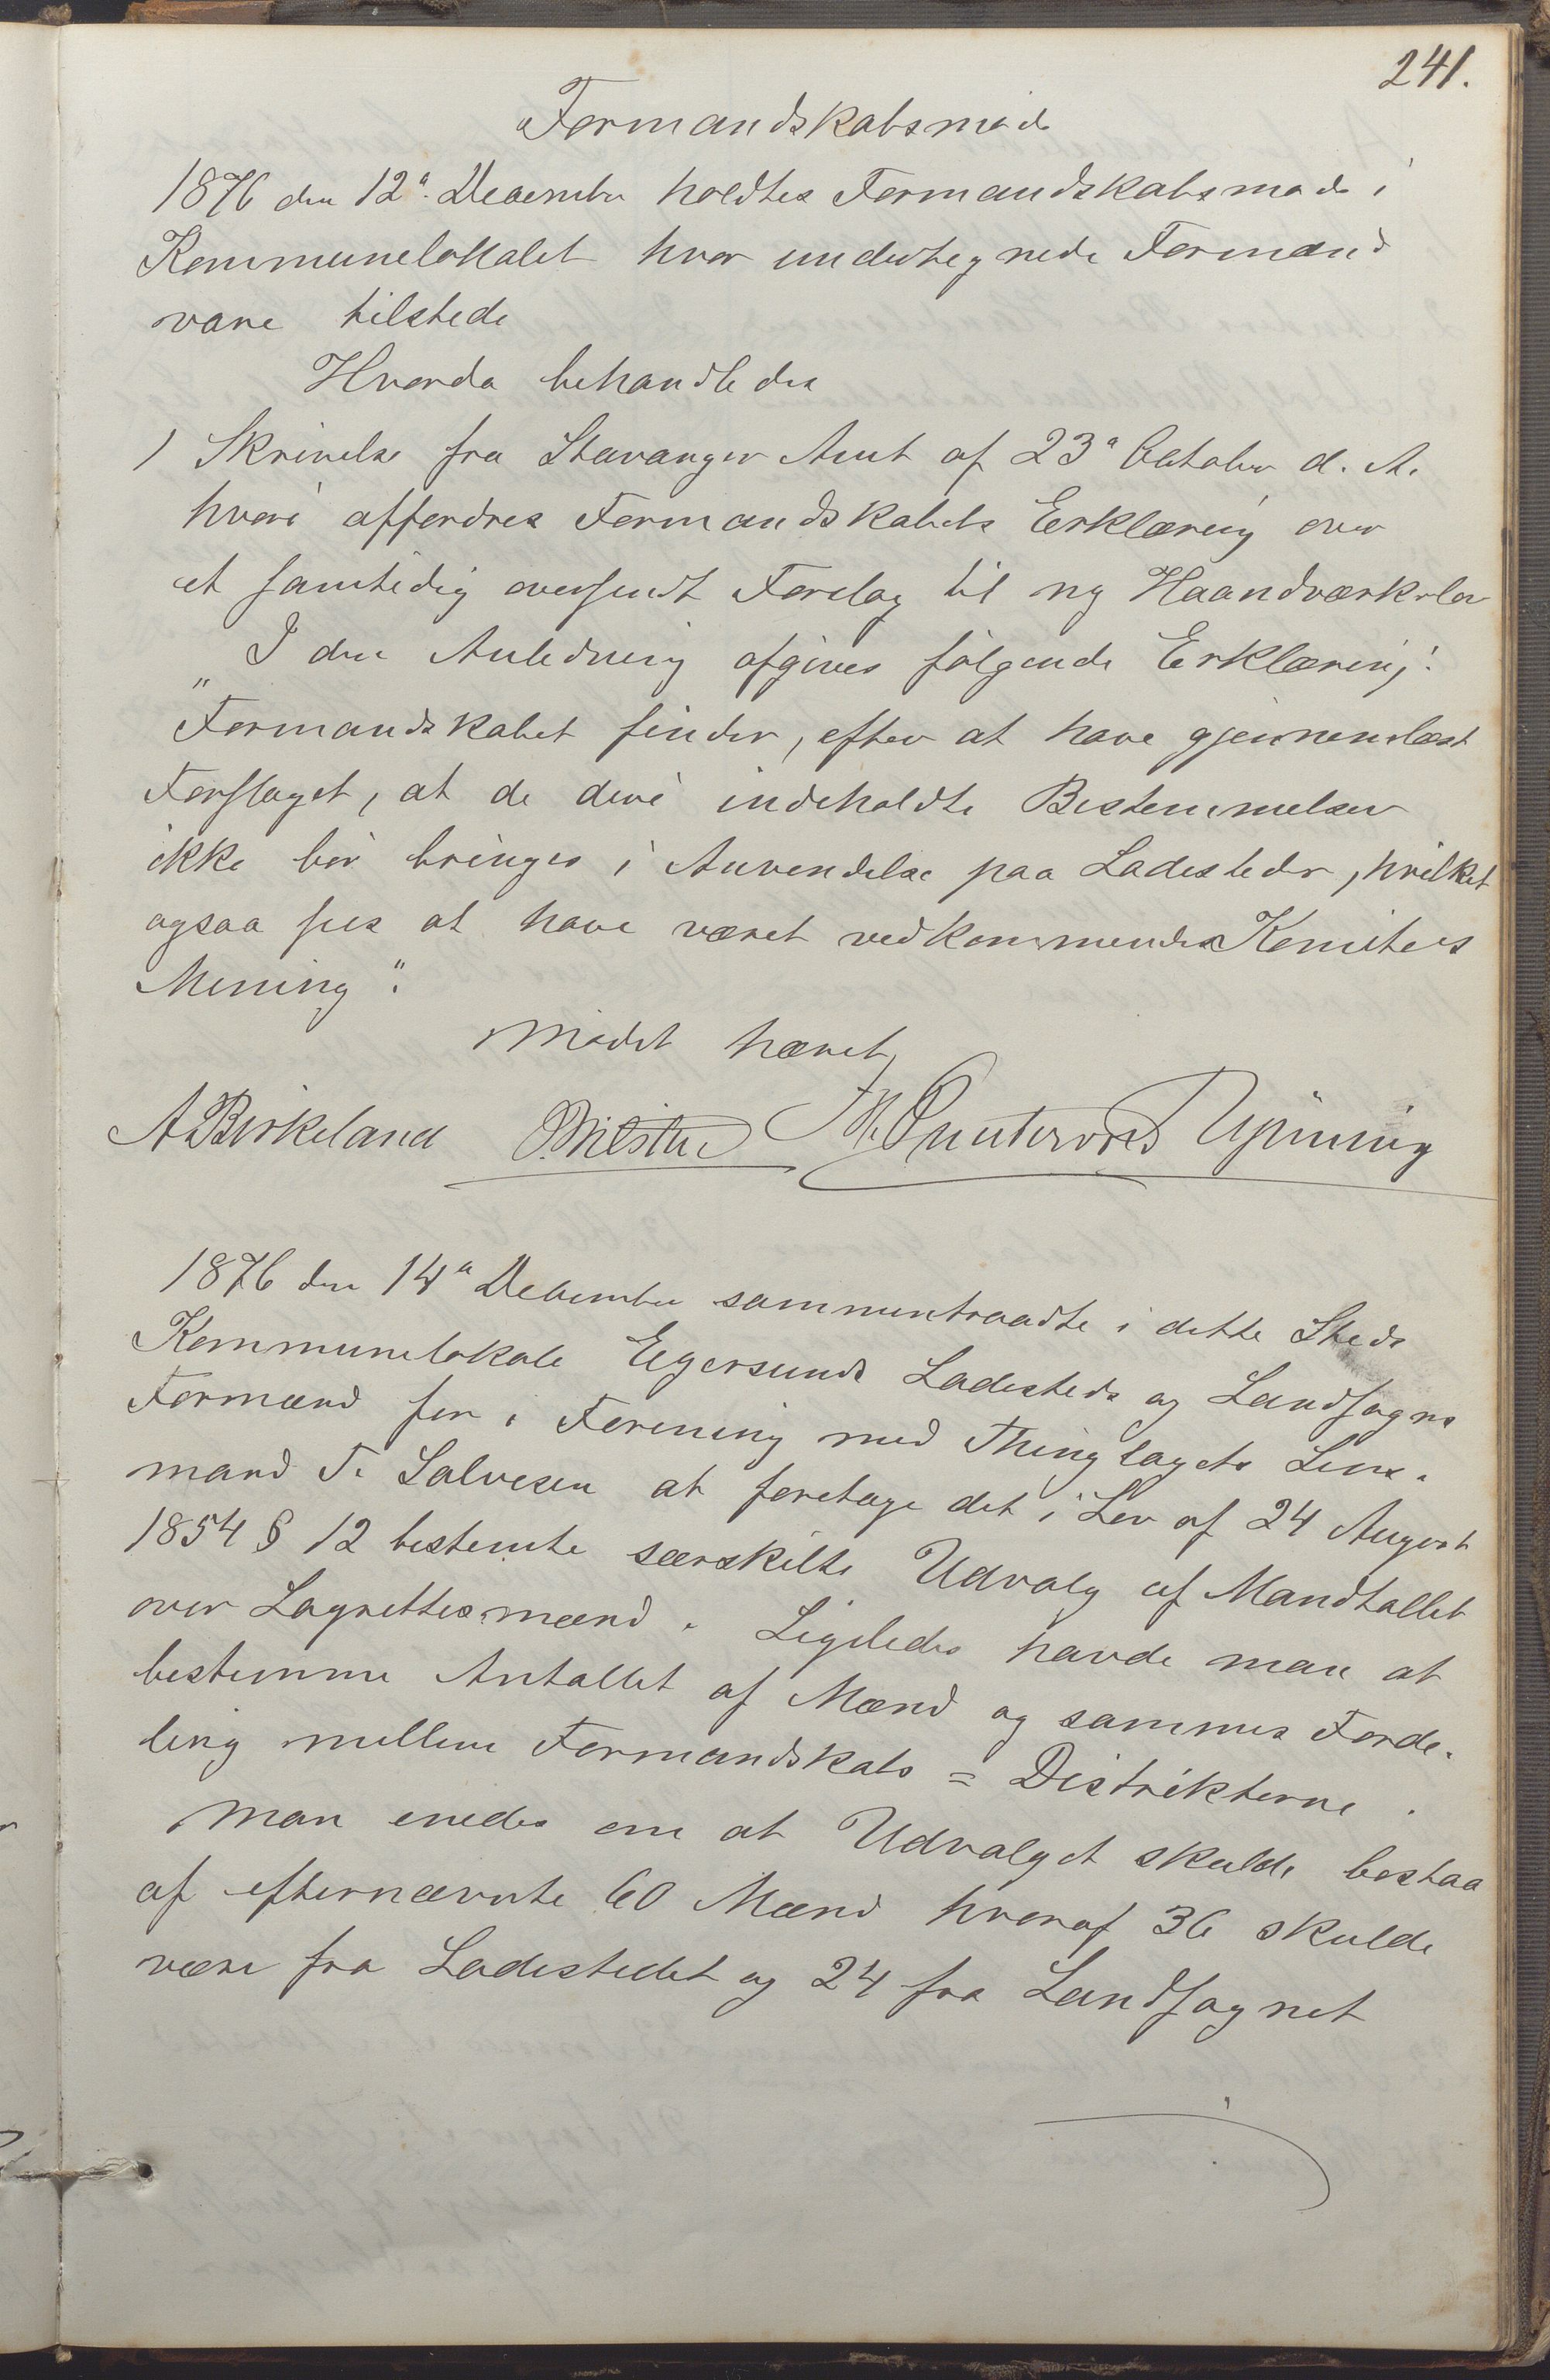 241.
Formandskabsmøde
1876 den 12te December holdtes Formandskabsmøde i
Kommunelokalet hvor undertegnede Formænd
vare tilstede
Hvorda behandledes
1) Skrivelse fra Stavanger Amt af 23de October d. A.
hvori affordres Formandskabets Erklæring over
et samtidig oversendt Forslag til ny Haandværkslov
I den Anledning afgives følgende Erklæring:
"Formandskabet finder, efter at have gjennemlæst
Forslaget, at de deri indeholdte Bestemmelser
ikke bør bringes i Anvendelse paa Ladesteder, hvilket
ogsaa sees at have været vedkommende Komitees
Mening".
Mødet hævet
A Birkeland
1876 den 14de December sammentraadte i dette Steds
Kommunelokale Egersunds Ladesteds og Landsogns
Formænd for i Forening med Thinglagets Lens-
mand T. Salvesen at foretage det i Lov af 24 August
1854 § 12 bestemte særskilte Udvalg af Mandtallet
over Lagrettesmænd. Ligeledes havde man at
bestemme Antallet af Mænd og sammes Forde-
ling mellem Formandskabs = Distrikterne.
Man enedes om at Udvalget skulde bestaa
af efternævnte 60 Mænd hvoraf 36 skulde
være fra Ladestedet og 24 fra Landsognet